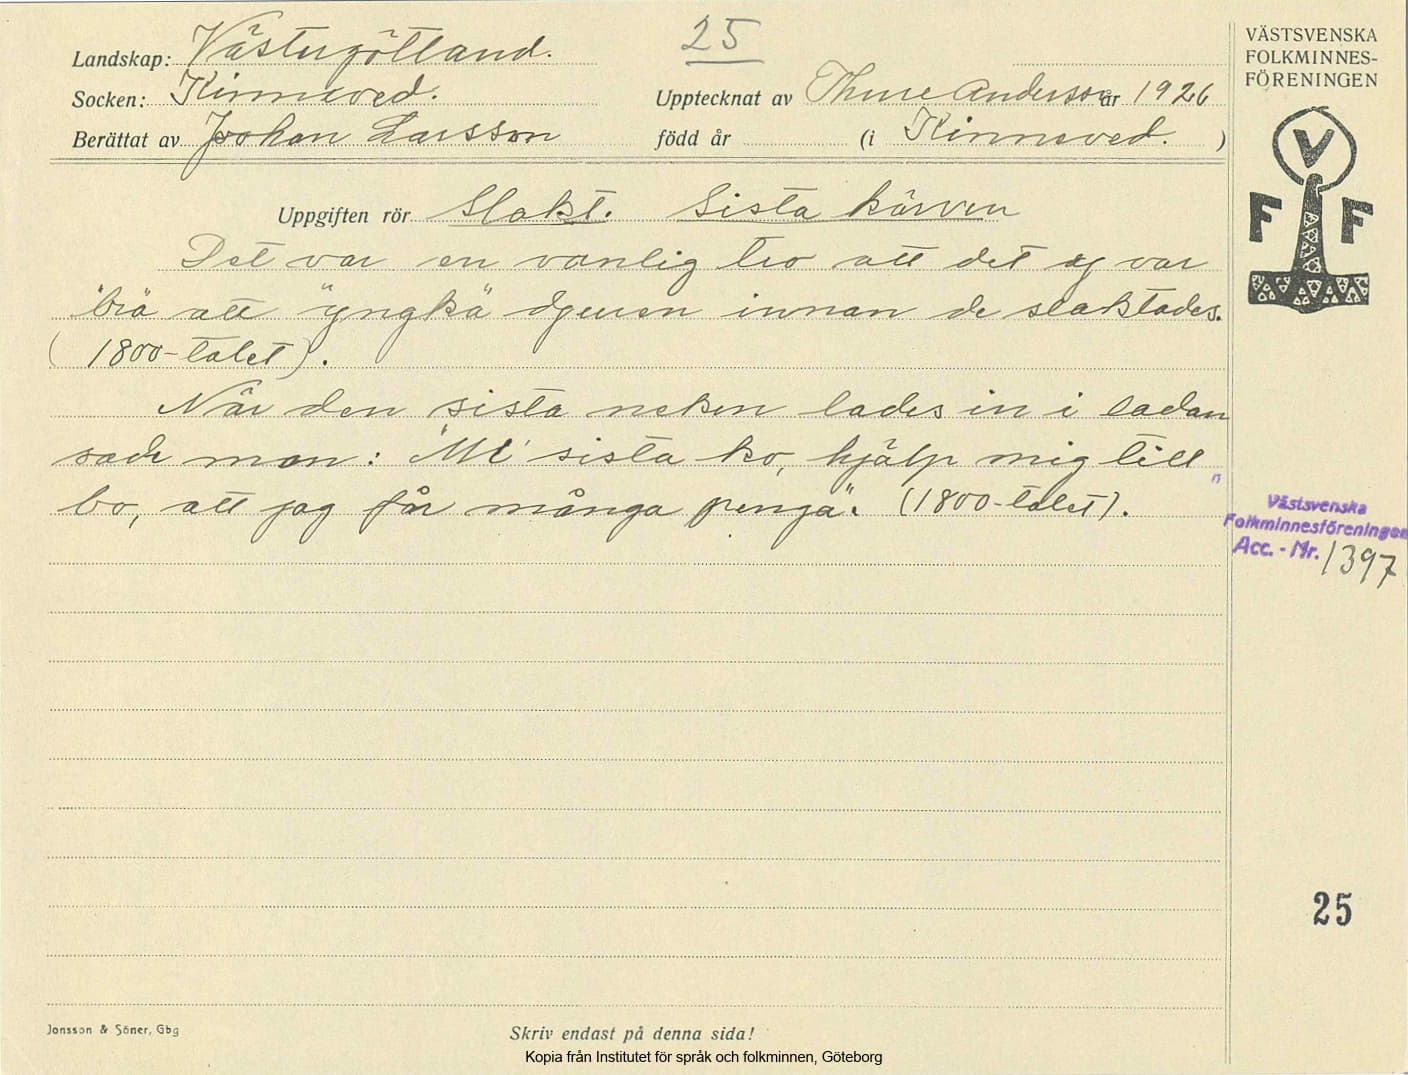 25
Landskap: Västergötland.
Socken: Kinneved. Upptecknat av Thure Andersson år 1926
Berättat av Johan Larsson född år (i Kinneved. )
Uppgiften rör Slakt. Sista kärven
Det var en vanlig tro att det ej var
"brä att "yngkä" djuren innan de slaktades.
(1800-talet).
När den sista neken lades in i ladan
sade man: "Mi sista ko, hjälp mig till
bo, att jag får många penga". (1800-talet).
VÄSTSVENSKA
FOLKMINNES-
FÖRENINGEN
V
F F
Västsvenska
Folkminnesföreningen
Acc. - Nr. 1397
25
Jonsson & Söner, Gbg
Skriv endast på denna sida!
Kopia från Institutet för språk och folkminnen, Göteborg